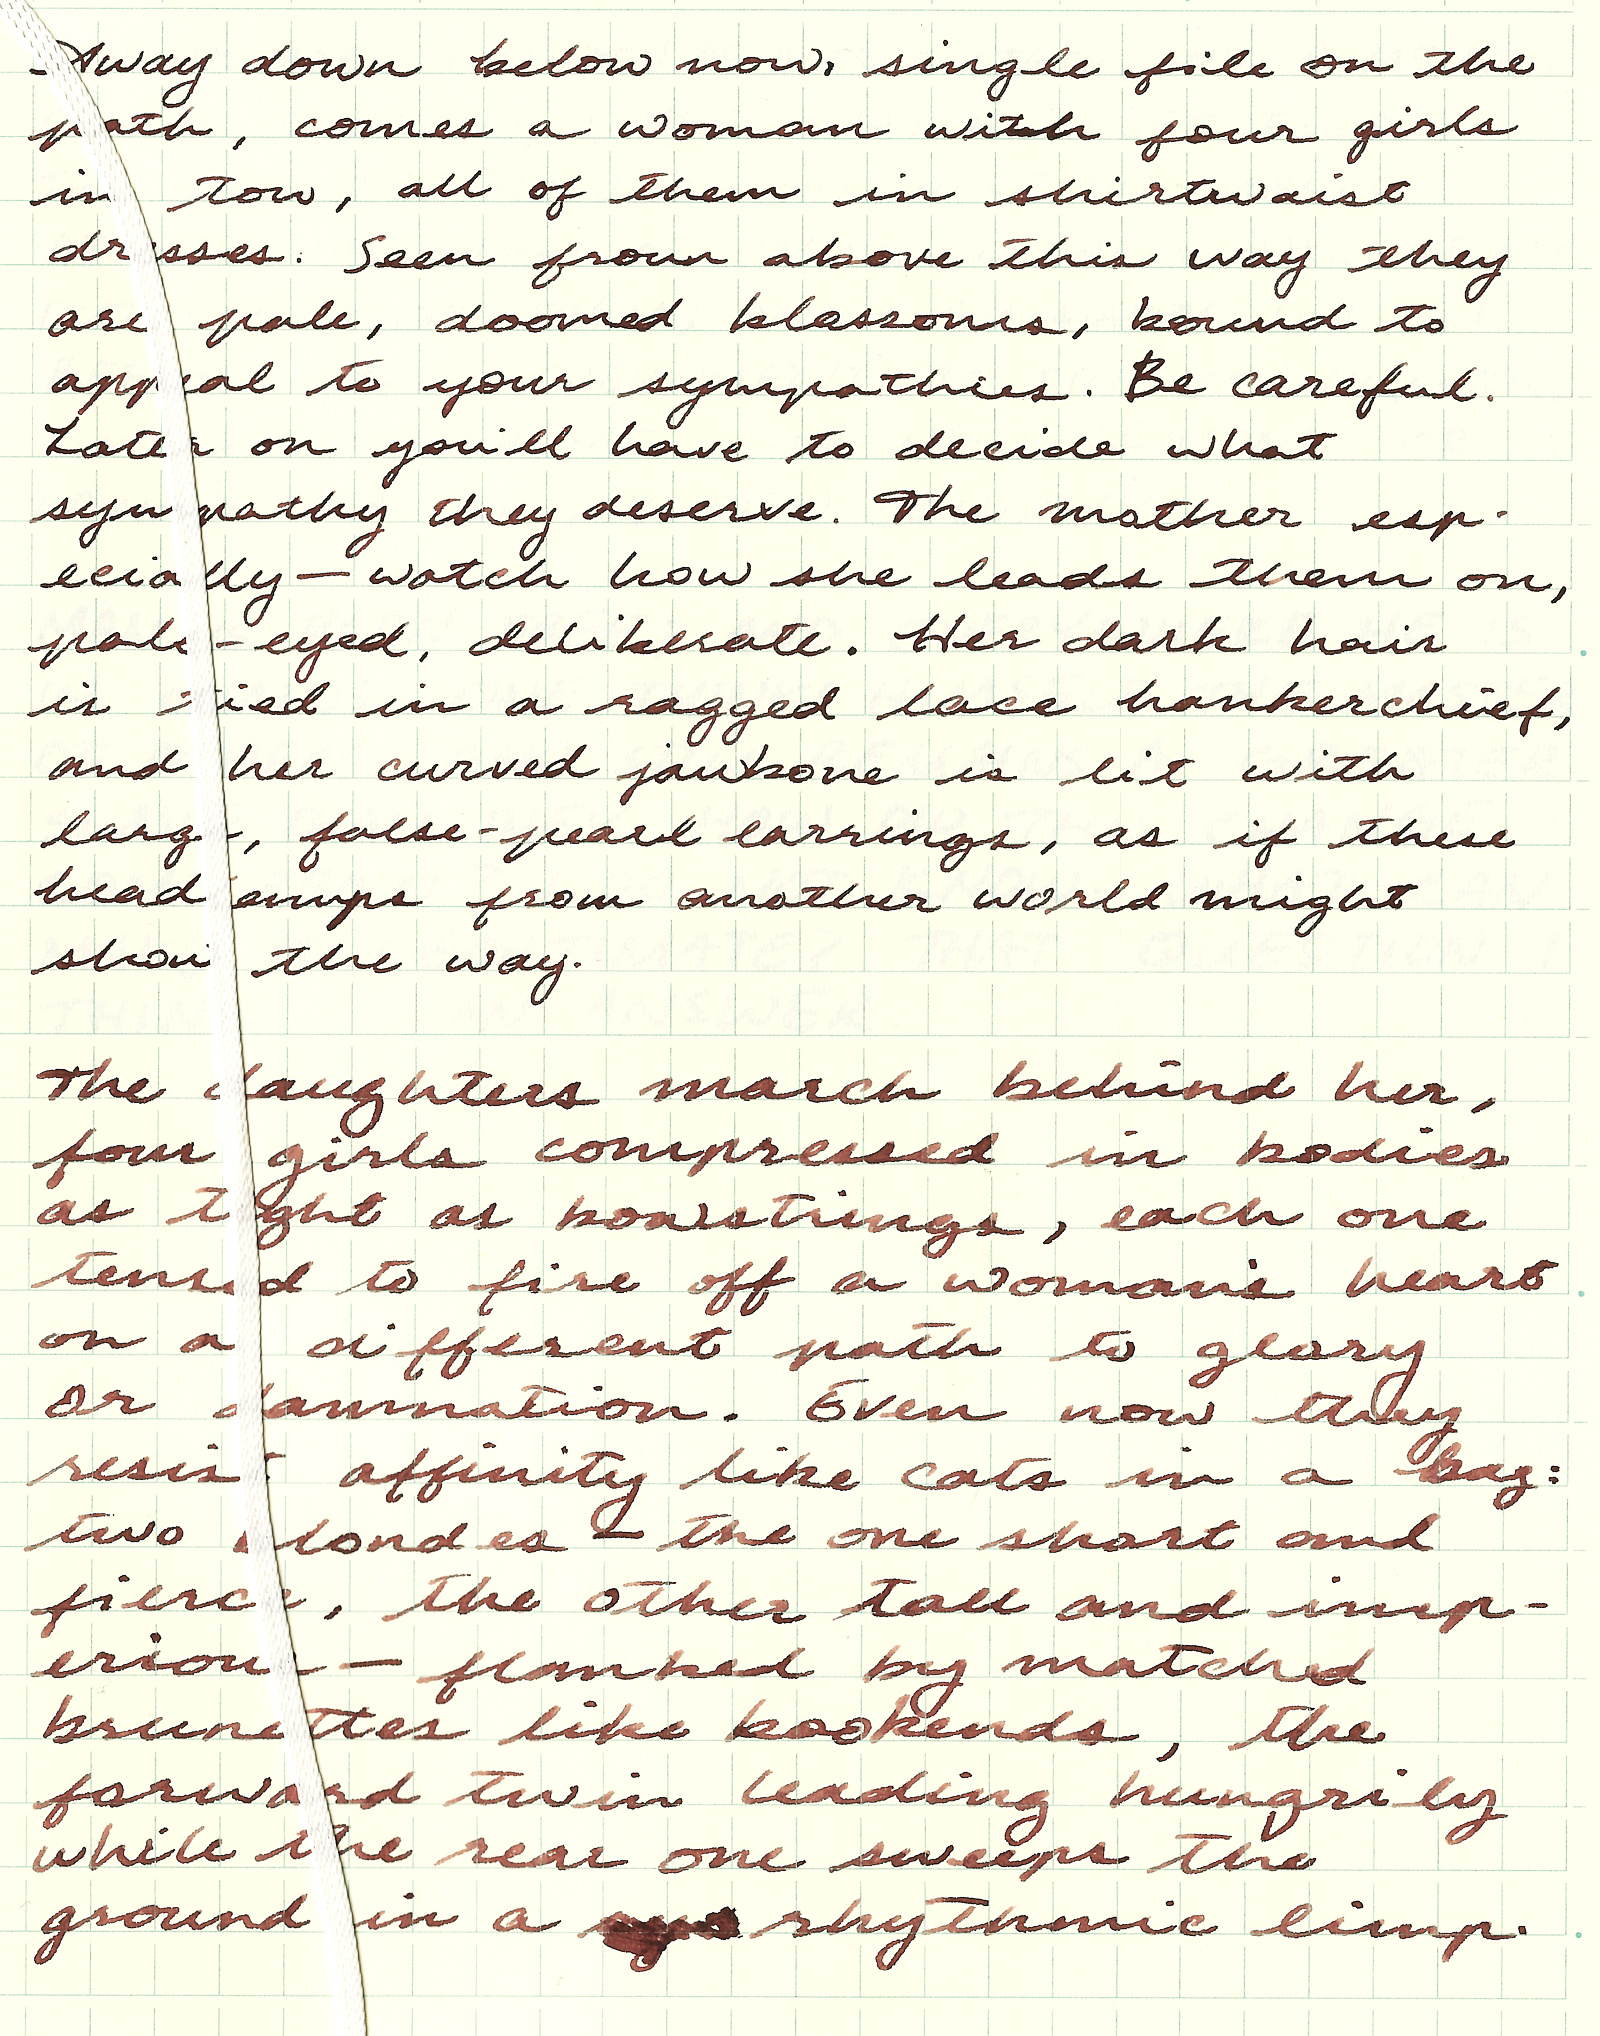 Away down below now, single file on the
path, comes a woman with four girls
in tow, all of them in shirtwaist
dresses. Seen from above this way they
are pale, doomed blossoms, bound to
appeal to your sympathies. Be careful.
Later on you'll have to decide what
sympathy they deserve. The mother esp-
ecially — watch how she leads them on,
pale-eyed, deliberate. Her dark hair
is tied in a ragged lace hankerchief,
and her curved jawbone is lit with
large, false-pearl earrings, as if these
headlamps from another world might
show the way.
The daughters march behind her,
four girls compressed in bodies
as tight as bowstrings, each one
tensed to fire off a woman's heart
on a different path to glory
or damnation. Even now they
resist affinity like cats in a bag:
two blondes — the one short and
fierce, the other tall and imp-
erious — flanked by matched
brunettes like bookends, the
forward twin leading hungrily
while the rear one sweeps the
ground in a rhythmic limp.